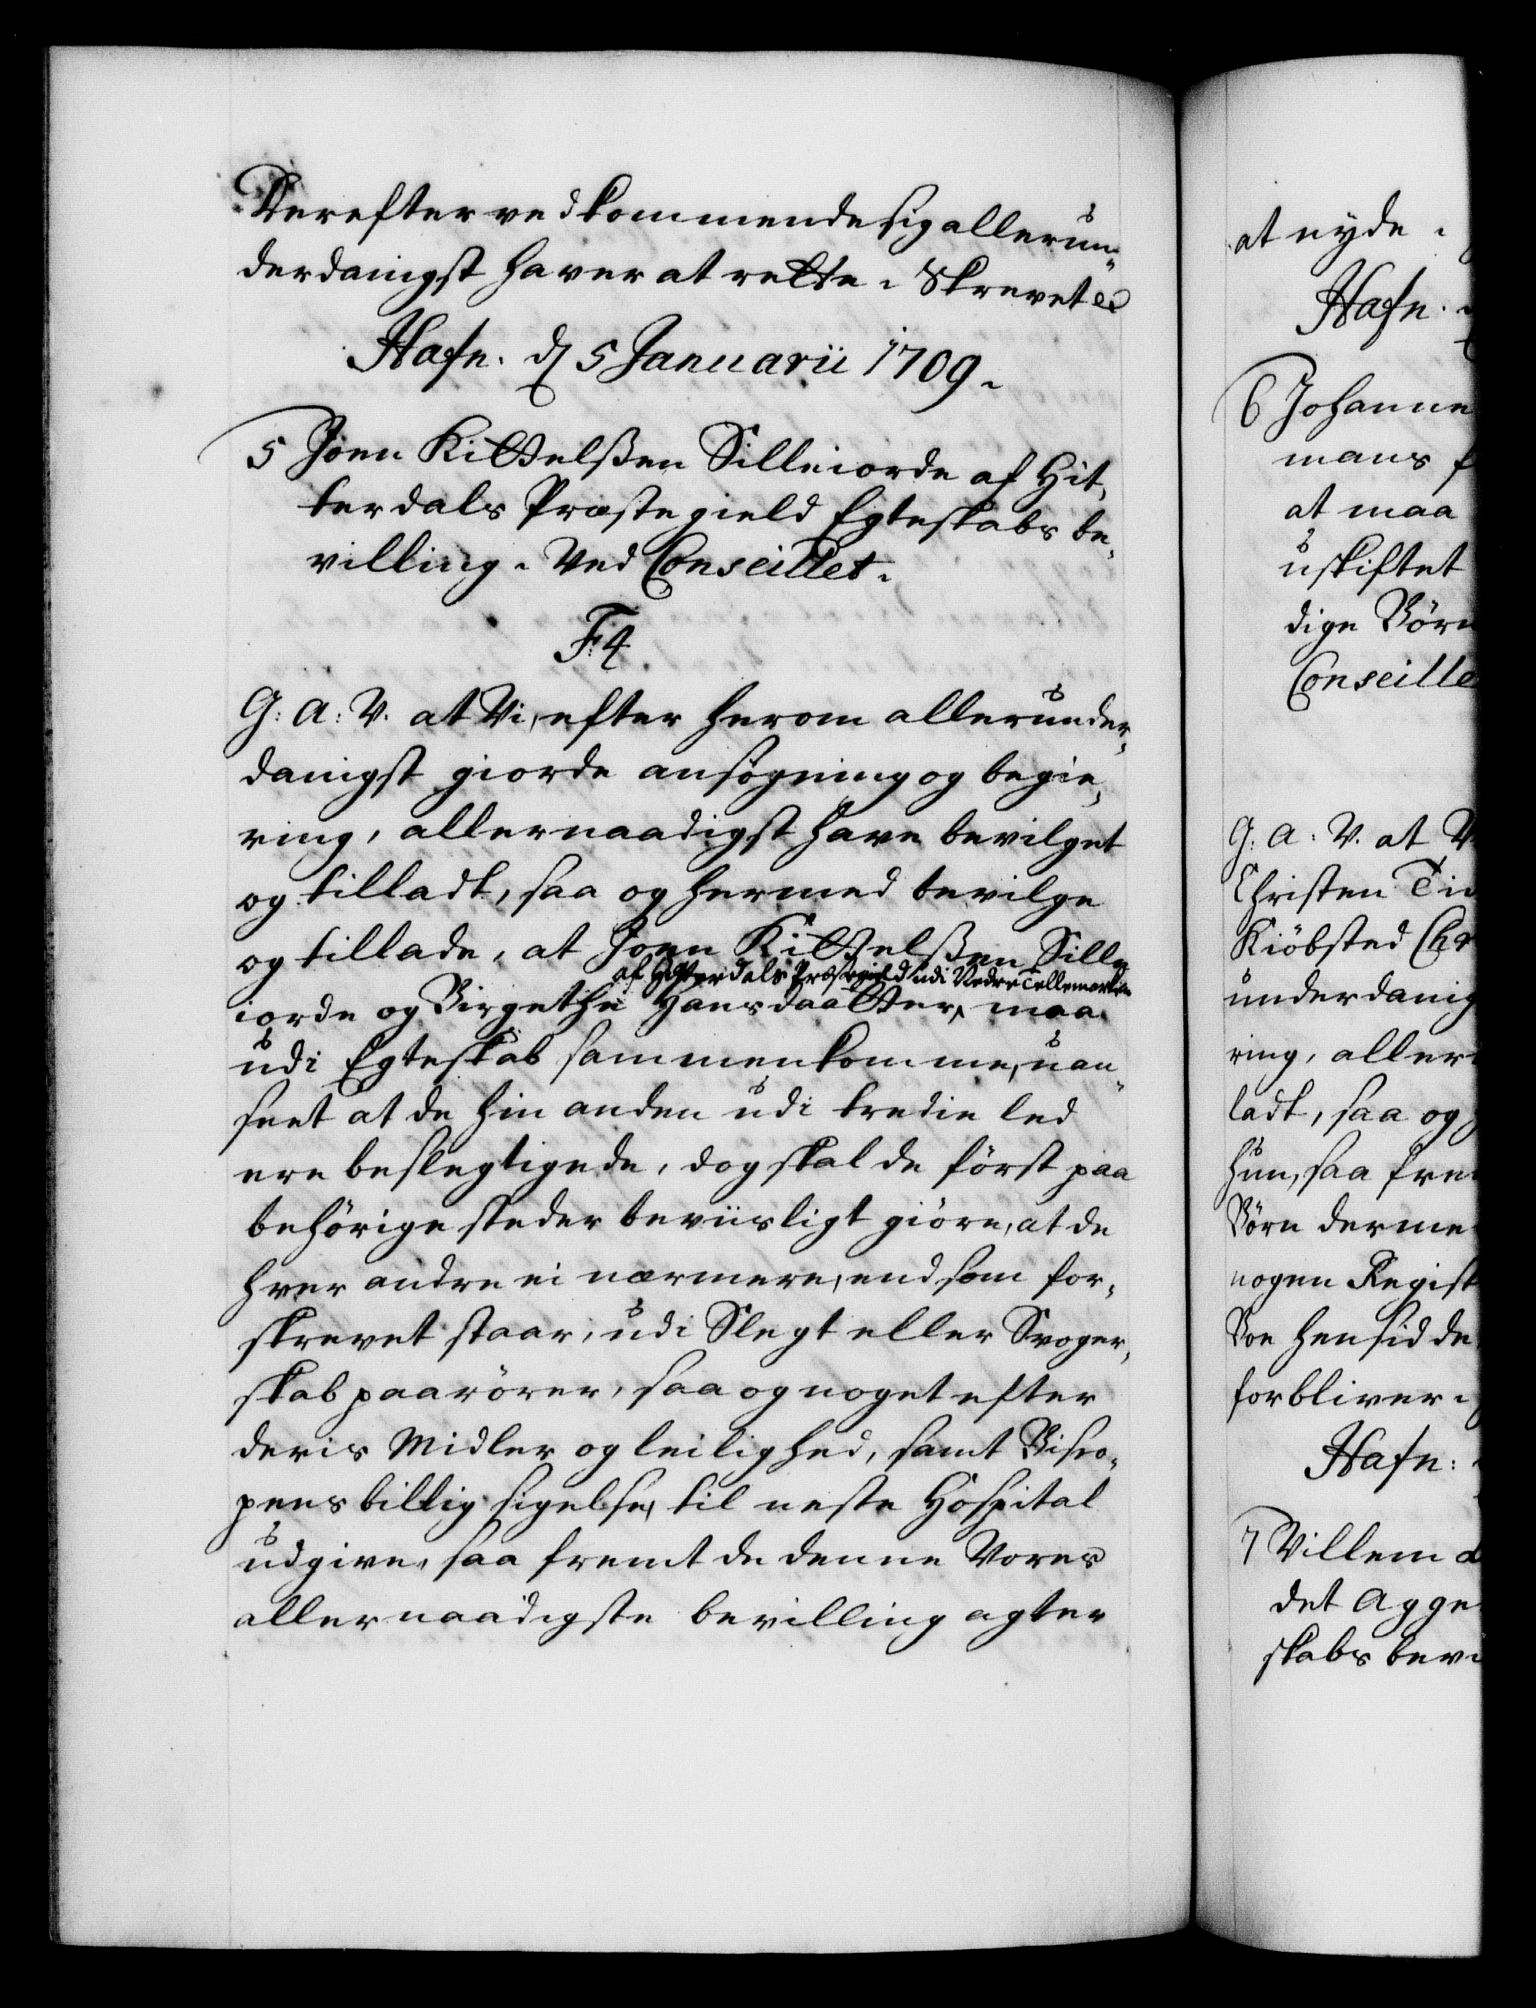 Derefter vedkommende sig allerun„
derdanigst haver at rette. Skrevet
Hafn. d 5 Januarii 1709.
5 Joen Kittelsßen Silleiorde af Hit,
terdals Præstegield Egteskabs be„
villing. Ved Conseillet.
F. 4
G: A: V. at Vi, efter herom allerunder„
danigst giorde ansøgning og begie„
ring, allernaadigst have bevilget
og tilladt, saa og hermed bevilge
og tillade, at Joen Kittelsßen Sille
af Hitterdals Præstegield udi Nedre Tellemarken
iorde og Birgethe Hansdaatter, maa
udi Egteskab sammenkomme, uan„
seet at de hin anden udi tredie led
ere beslegtigede, dog skal de först paa
behörige steder beviisligt giöre, at de
hver andre ei nærmere, end som for„
skrevet staar, udi Slegt eller Svoger„
skab paarörer, saa og noget efter
deris Midler og leilighed, samt Bisco„
pens billig sigelse, til neste Hospital
udgive, saa fremt de denne Vores
allernaadigste bevilling agter
at nyde.
Hafn.
6 Johanne
mans
at maa
uskiftet
dige Börn
Conseille
G: A: V. at V
Christen
Kiöbsted
underdanig
ring, aller
ladt, saa og
hun, saa
Börn derme
nogen Regist
Boe hensidde
forbliver.
Hafn:
7 Villem
det Agge
skabs bevi